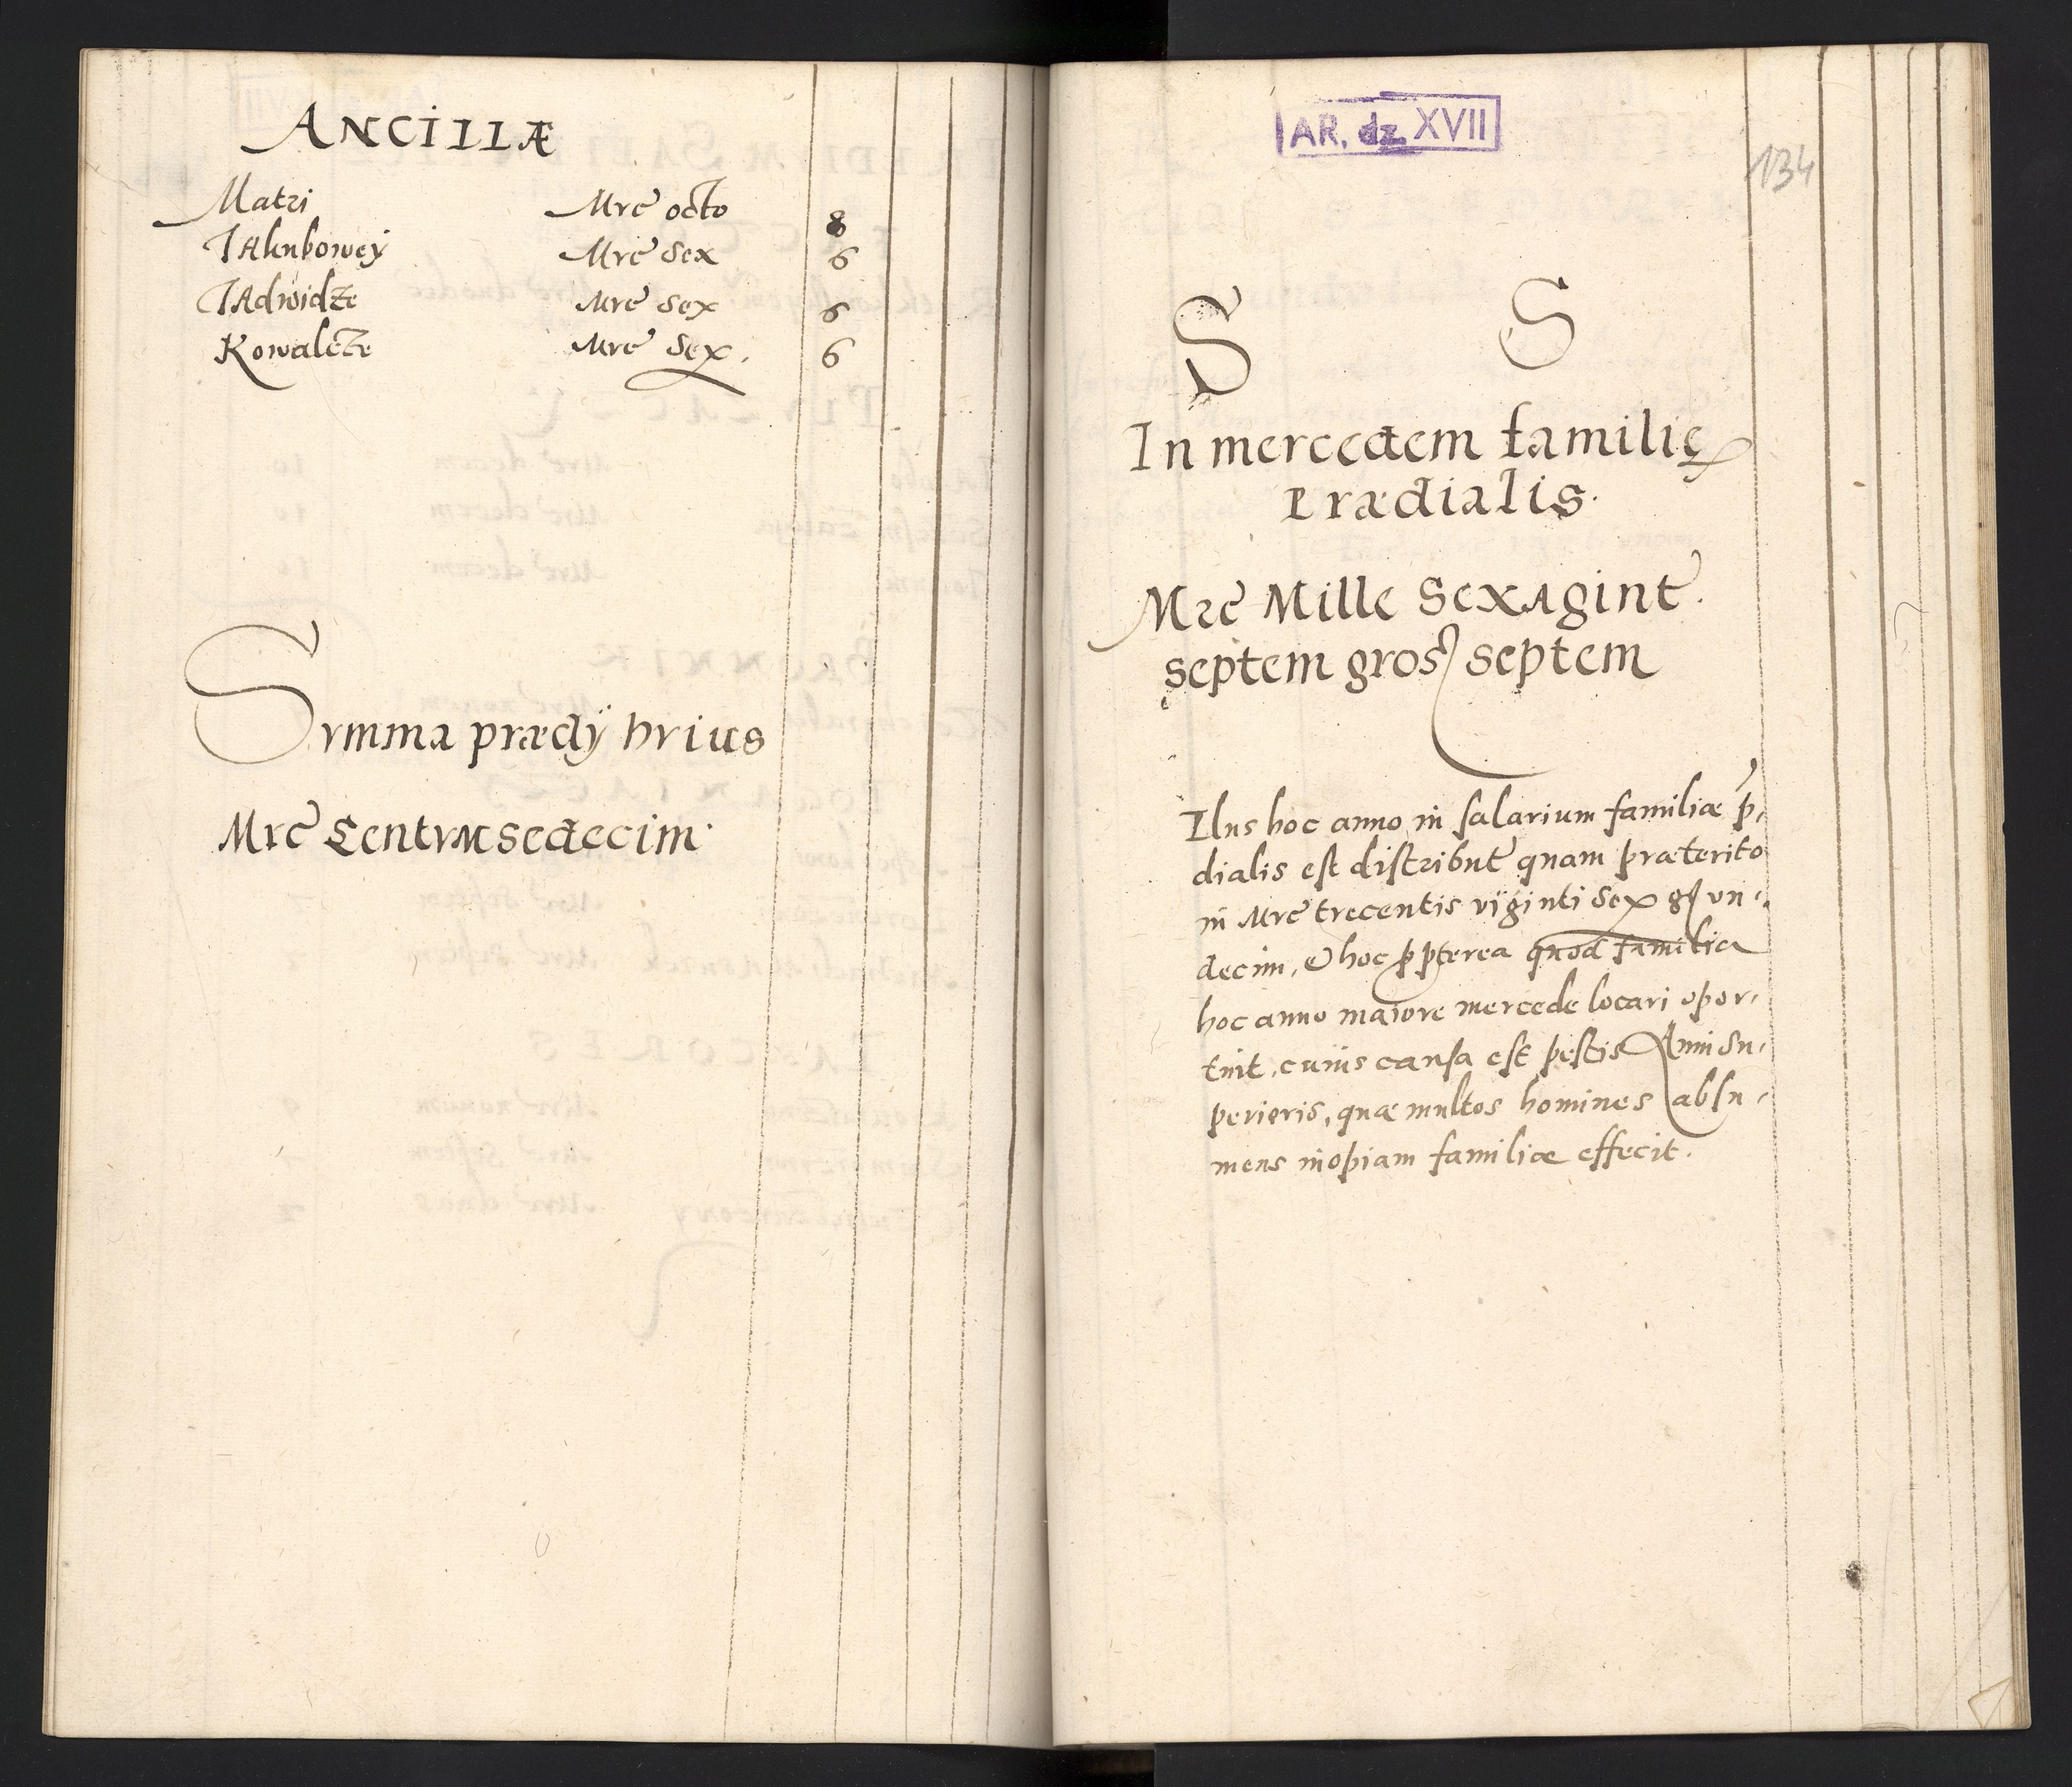 ANCILLÆ
Matri Mrc̄ octo 8
JAkubowey Mrc̄ sex 6
JAdwidze Mrc̄ sex 6
Kowalcze Mrc̄ sex. 6
Svmma prædÿ hvius
Mrc̄ Centvm sedecim.
AR. dz. XVII
134
S S
In mercedem familię
Prædialis.
Mrc̄ Mille Sexagint̄.
septem gros septem
Plus hoc anno in salarium familiæ p̄,
dialis est distribut̄ quam præterito
in Mrc̄ trecentis viginti sex gr vn,
decim, & hoc ppterea quod familia
hoc anno maiore mercede locari opor,
tuit, cuius causa est pestis Anni su,
perioris, quæ multos homines absu,
mens inopiam familiæ effecit.